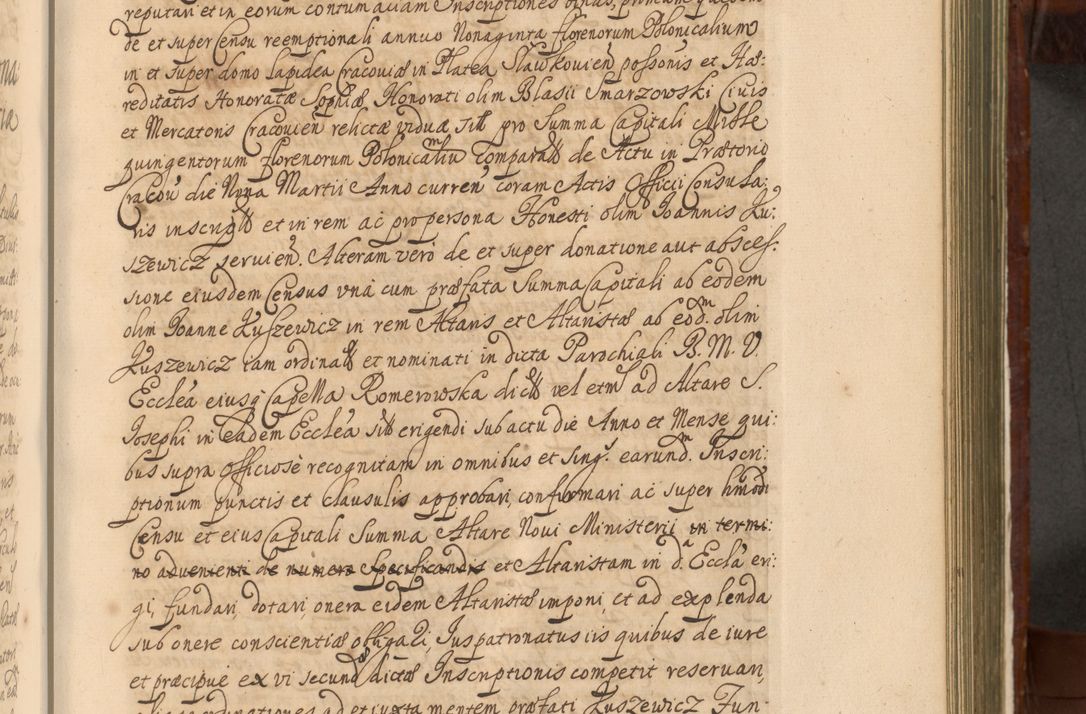 reputari et in eorum contumaciam Inscriptiones binas, primam quidem
de et super Censu reemptionali annuo Nonaginta florenorum Polonicalium
in et super domo lapidea Cracoviæ in Platea Slawkovien̄ possonis et Hæ:
reditatis Honoratæ Sophiæ Honorati olim Blasii Smarzowski Civis
et Mercatoris Cracovien̄ relictæ viduæ sitt pro Summa Capitali Mille
quingentorum florenorum Polonicaliū comparatt de Actu in Prætorio
Cracov̄ die Nona Martii Anno curren̄ coram Actis Officii Consula:
ris inscriptt et in rem ac pro persona Honesti olim Joannis Ku:
szewicz servien̄. Alteram vero de et super donatione aut absces:
sione eiusdem Census una cum præfata Summa Capitali ab eodem
olim Joanne Kuszewicz in rem Altaris et Altaristæ ab eod̄m. olim
Kuszewicz tam ordinatt et nominati in dicta Parochiali B. M. V.
Ecclēa eiusq́ Capella Romerowska dictt vel etm̄ ad Altare S.
Josephi in Eadem Ecclēa sitt erigendi sub actu die Anno et Mense qui:
bus supra officiosè recognitam in omnibus et sing.s earund.m Inscri:
ptionum punctis et clausulis approbari, confirmari ac super hm̄odi
Censu et eius Capitali Summa Altare Novi Ministerii in termi:
no advenienti de numero specificandis et Altaristam in d.a Ecclā eri:
gi, fundari, dotari, onera eidem Altaristæ imponi, et ad explenda
sub onere conscientiæ obligari, Jus patronatus iis quibus de iure
et præcipue ex vi secundæ dictæ Inscriptionis competit reservari,
ad et iuxta mentem præfati Kuszewicz Fun-